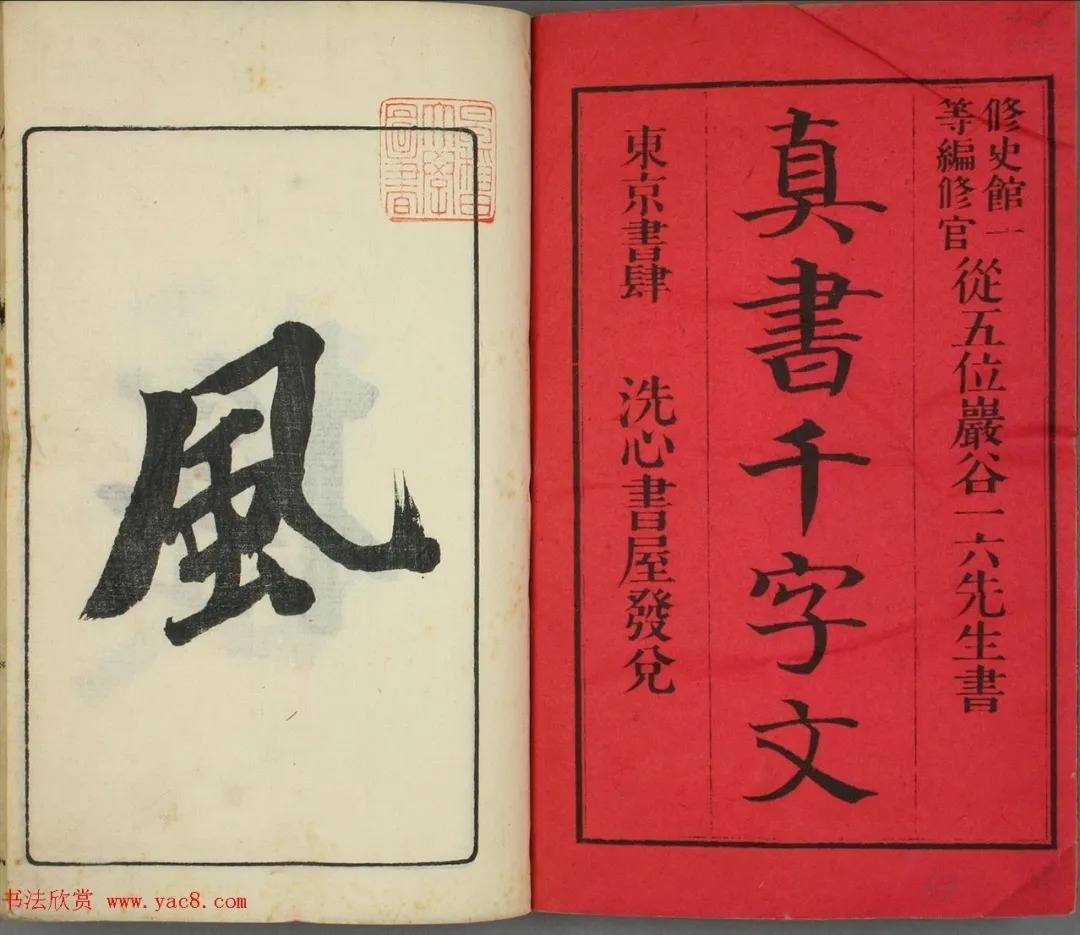 修史館一
等編修官
從五位巖谷一六先生書
真書千字文
東京書肆 洗心書屋發兌
風
书法欣赏 www.yac8.com